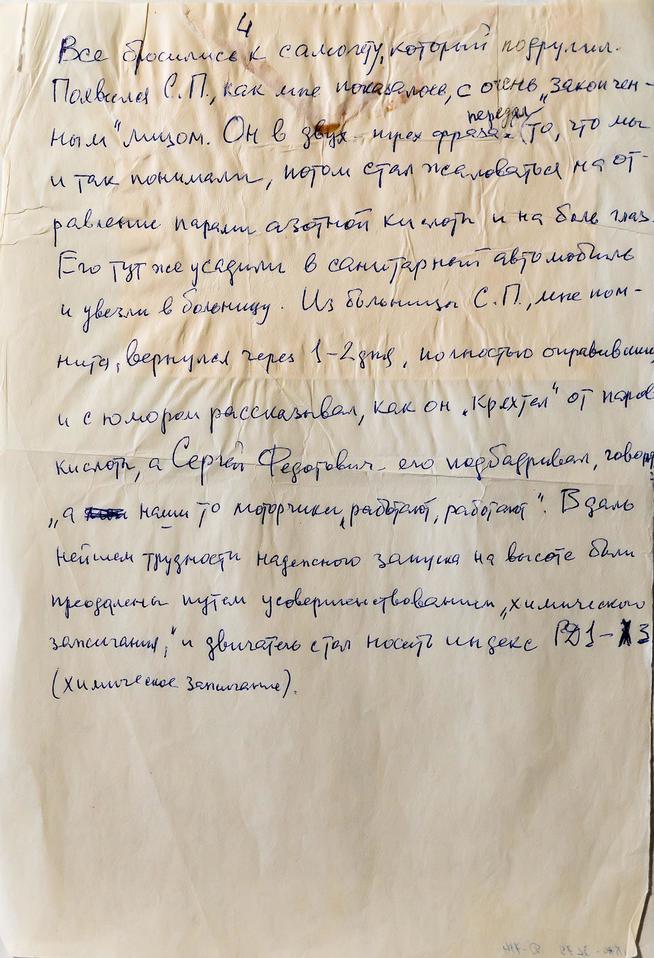 4
Все бросились к самолету, который подрулил.
Появился С.П., как мне показалось, с очень „закопчен-
ным" лицом. Он в двух-трех фразах передал то, что мы
и так понимали, потом стал жаловаться на от-
равление парами азотной кислоты и на боль глаз.
Его тут же усадили в санитарный автомобиль
и увезли в больницу. Из больницы С.П., мне пом-
нится, вернулся через 1-2 дня, полностью оправившись
и с юмором рассказывал, как он „кряхтел" от паров
кислоты, а Сергей Федотович его подбадривал, говоря
„а наши то моторчики „работают, работают". В даль
нейшем трудности надежного запуска на высоте были
преодолены путем усовершенствования „химического
зажигания," и двигатель стал носить индекс РД1-ХЗ
(химическое зажигание).